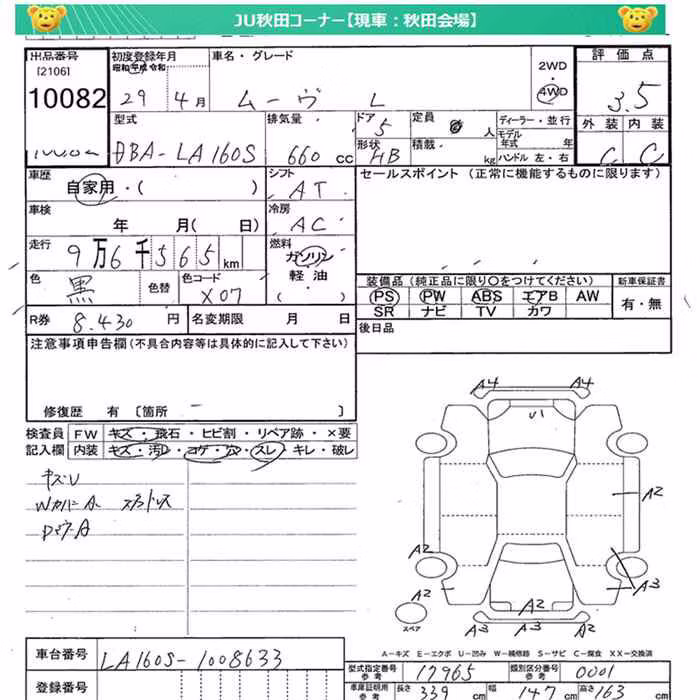 JU秋田コーナー【現車：秋田会場】
出品番号 初度登録年月 車名・グレード 2WD・4WD 評価点
[2106] 昭和 平成 令和
10082 29年 4月 ムーヴ L 3.5
型式 排気量 ドア 5 定員 人 ディーラー・並行 外装 内装
DBA-LA160S 660cc 形状 HB 積載 kg モデル年式 年 ハンドル 左・右 C C
車歴 シフト セールスポイント (正常に機能するものに限ります)
自家用・( ) AT
車検 冷房
年 月( 日) AC
走行 燃料
9万6千565km ガソリン
軽油
( )
色 色替 色コード 装備品 (純正品に限り○をつけてください) 新車保証書
黒 X07 PS PW ABS エアB AW 有・無
SR ナビ TV カワ
R券 8.430円 名変期限 月 日 後日品
注意事項申告欄(不具合内容等は具体的に記入して下さい)
修復歴 有 〔箇所 - 〕
検査員 FW キズ・飛石・ヒビ割・リペア跡・×要
記入欄 内装 キズ・汚レ・コゲ・穴・スレ・キレ・破レ
キズU
WカバーA スタッドレス
DマクA
A4 A4
U1
A2
A2 A3
A2 A2 A3
A3 A3
スペア
A-キズ E-エクボ U-凹み W-補修跡 S-サビ C-腐食 XX-交換済
車台番号 LA160S-1008633 型式指定番号 参考 17965 類別区分番号 参考 0001
登録番号 車庫証明用 参考 長さ 339cm 幅 147cm 高さ 163cm